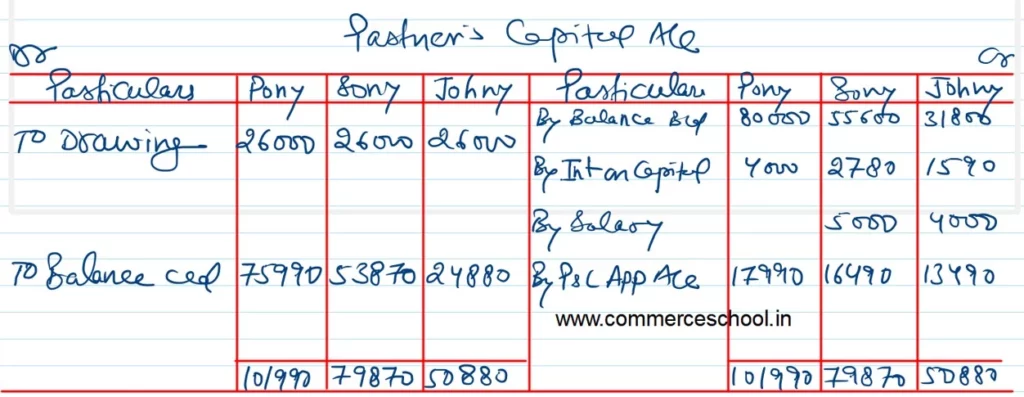 Partner's Capital A/c
Dr Cr
Particulars Pony Sony Johny Particulars Pony Sony Johny
By Balance b/d 80000 55600 31800
To Drawing 26000 26000 26000
By Int on Capital 4000 2780 1590
By Salary 5000 4000
To Balance c/d 75990 53870 24880 By P&L App A/c 17990 16490 13490
www.commerceschool.in
101990 79870 50880 101990 79870 50880